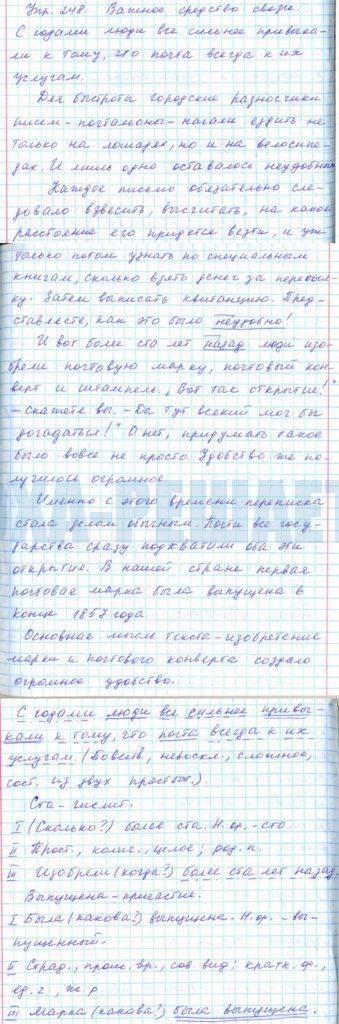 Упр. 248. Важное средство связи.
С годами люди все сильнее привыка-
ли к тому, что почта всегда к их
услугам.
Для быстроты городские разносчики
писем - почтальоны - начали ездить не
только на лошадях, но и на велосипе-
дах. И лишь одно оставалось неудобным
Каждое письмо обязательно сле-
довало взвесить, высчитать, на какое
расстояние его придется везти, и уж
только потом узнать по специальным
книгам, сколько взять денег за пересыл-
ку. Затем выписать квитанцию. Пред-
ставляете, как это было неудобно!
И вот более ста лет назад люди изо-
брели почтовую марку, почтовый кон-
верт и штемпель. „Вот так открытие!"
- скажете вы. - Да тут всякий мог бы
догадаться!" О нет, придумать такое
было вовсе не просто. Удобство же по-
лучилось огромное.
Именно с этого времени переписка
стала делом обычным. Почти все госу-
дарства сразу подхватили оба эти
открытие. В нашей стране первая
почтовая марка была выпущена в
конце 1857 года.
Основная мысль текста - изобретение
марки и почтового конверта создало
огромное удобство.
С годами люди все сильнее привы-
кали к тому, что почта всегда к их
услугам. (Повеств., невоскл., сложное,
сост. из двух простых.).
Ста - числит.
I (Сколько?) более ста. Н.ф. - сто.
II Прост., колич., целое; род. п.
III Изобрели (когда?) более ста лет назад.
Выпущена - причастие.
I Была (какова?) выпущена. Н.ф. - вы-
пущенный.
II Страд., прош. вр., сов вид; кратк. ф.,
ед. г., ж. р
III Марка (какова?) была выпущена.